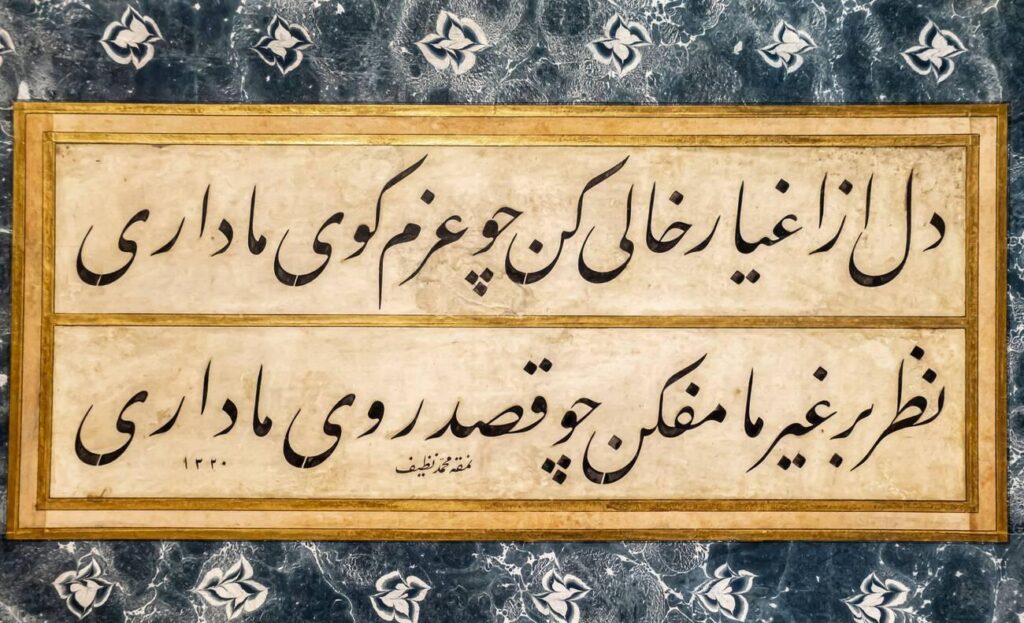 دل از اغیار خالی کن چو عزم کوی ما داری
نظر بر غیر ما مفکن چو قصد روی ما داری
نمقه محمد نظیف ١٣٢٠